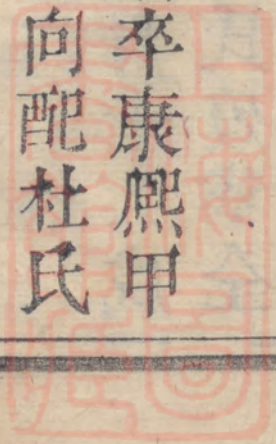 卒康熙甲
向配杜氏